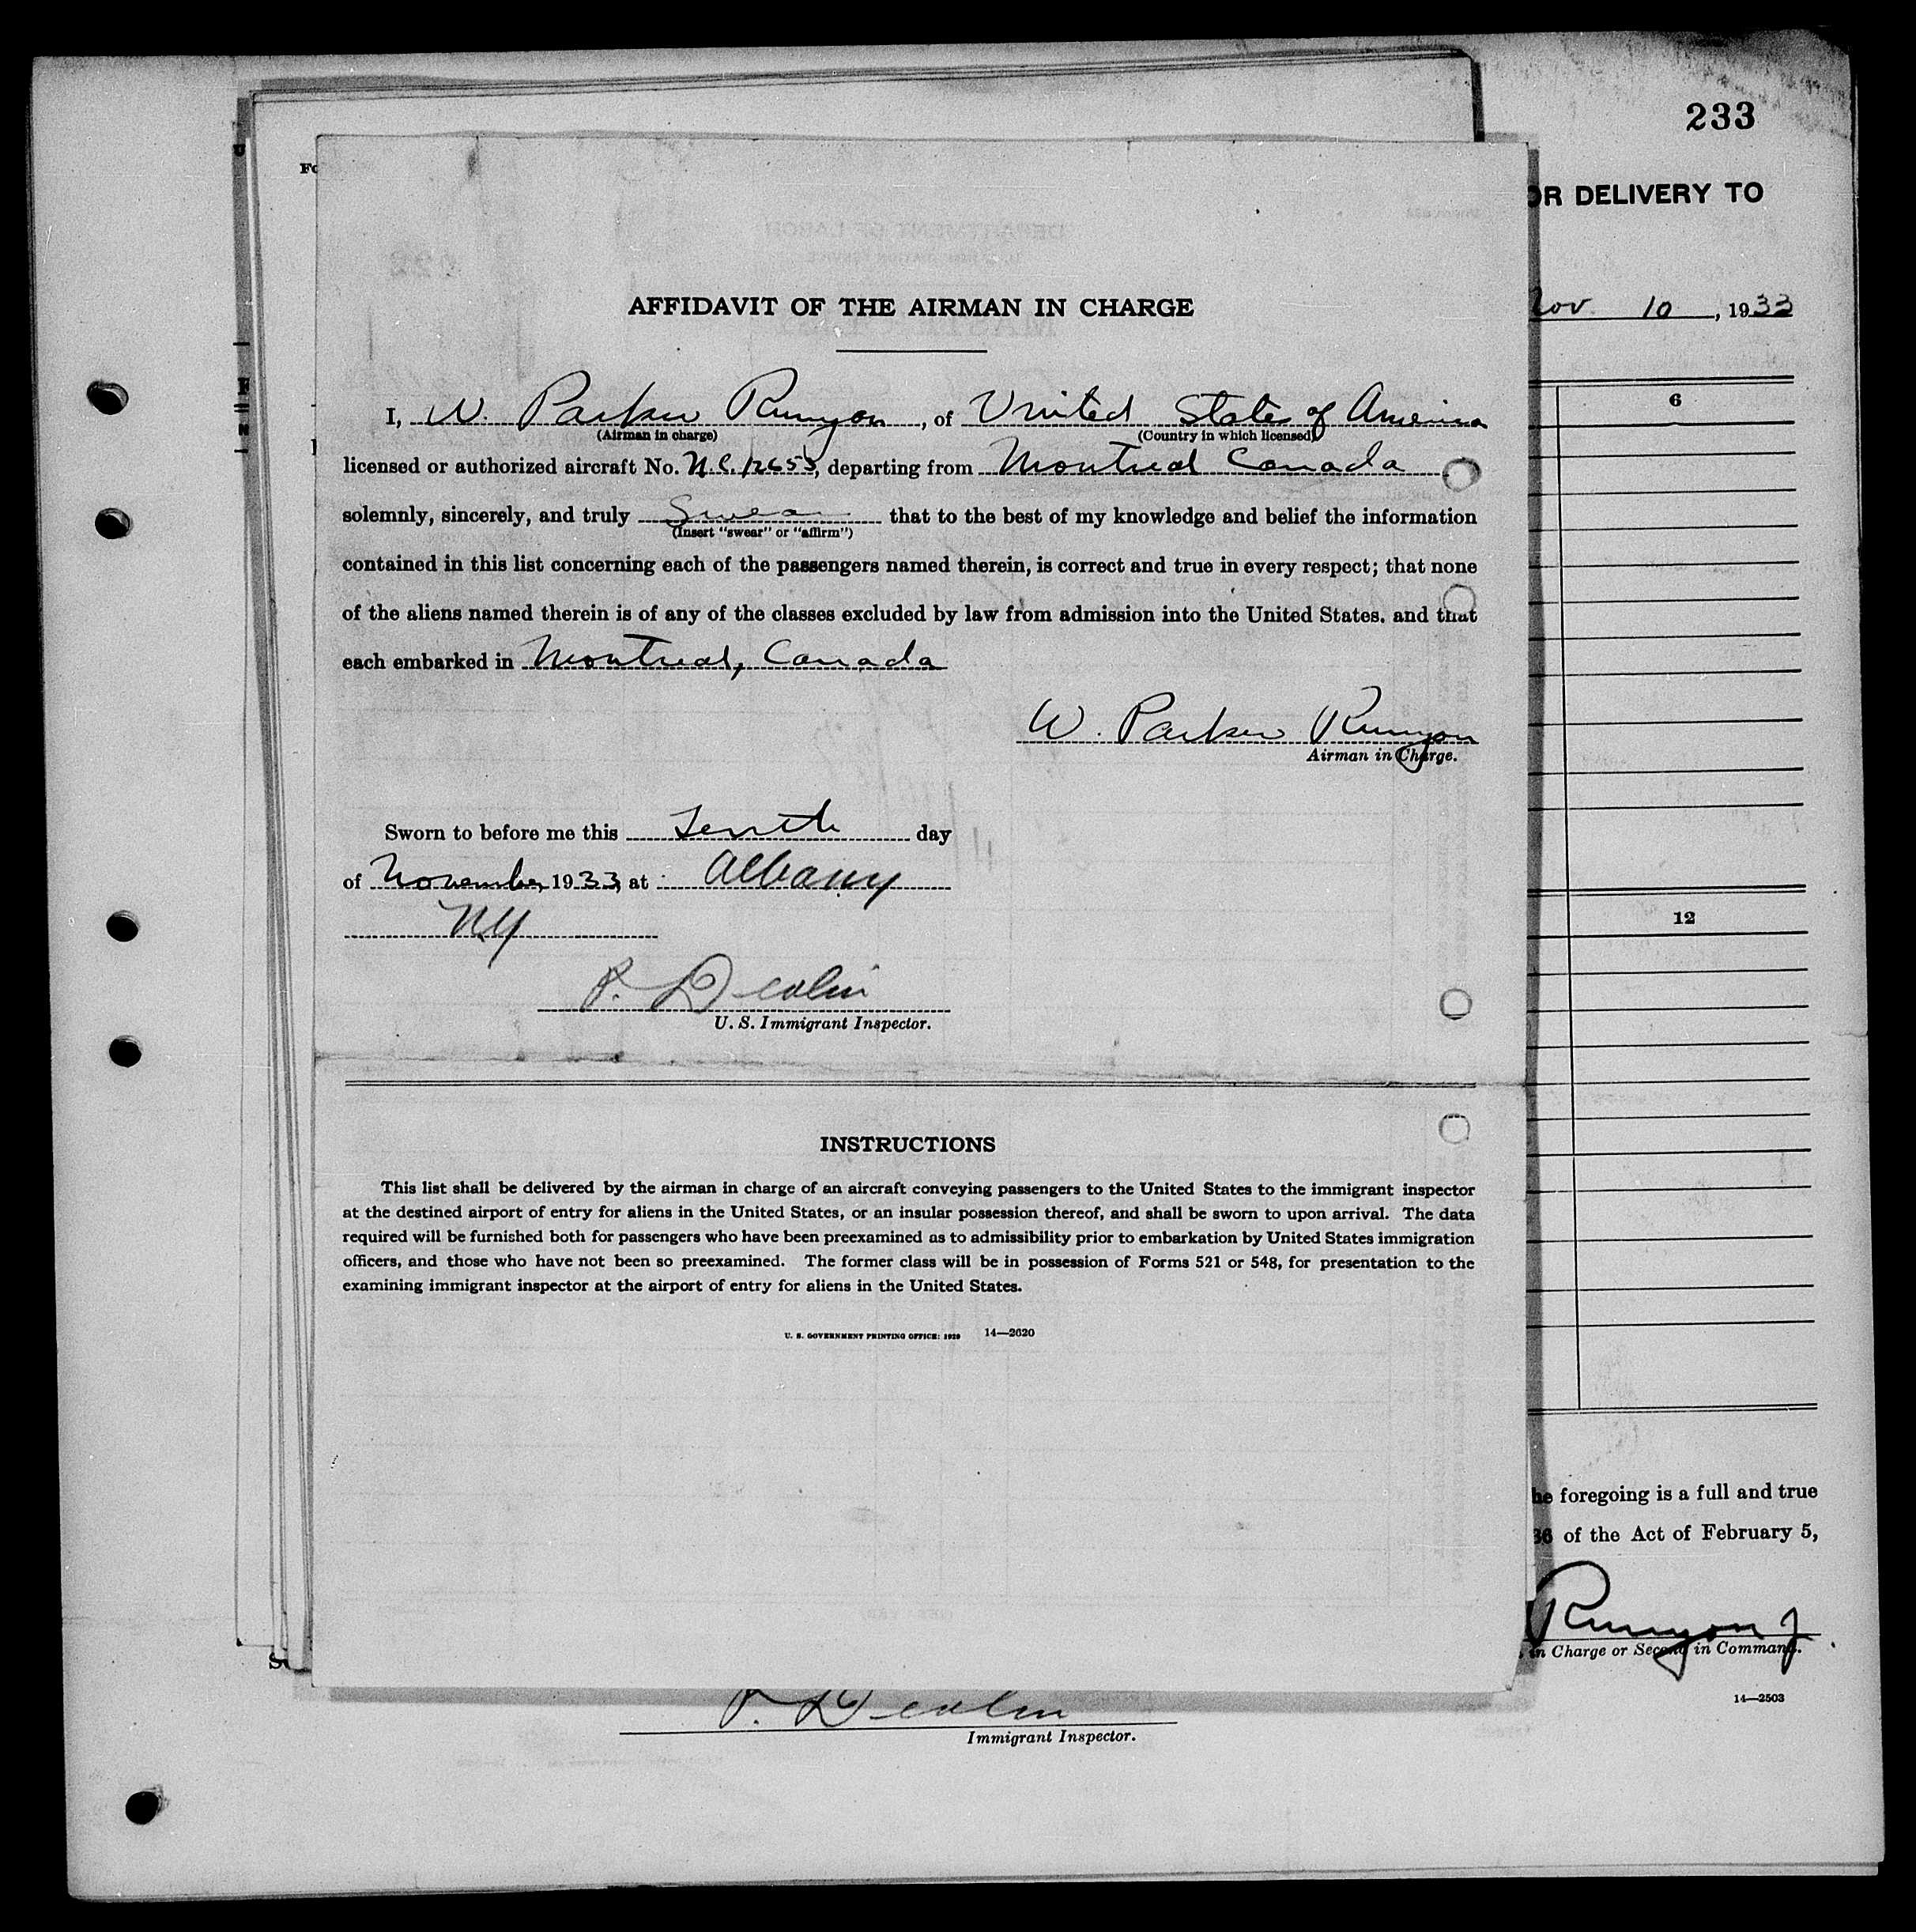 233
OR DELIVERY TO
Nov. 10, 1933
6
12
AFFIDAVIT OF THE AIRMAN IN CHARGE
I, W. Parker Runyon, of United State of America
(Airman in charge) (Country in which licensed)
licensed or authorized aircraft No. N.C. 12653, departing from Montreal Canada
solemnly, sincerely, and truly Swear that to the best of my knowledge and belief the information
(Insert "swear" or "affirm")
contained in this list concerning each of the passengers named therein, is correct and true in every respect; that none
of the aliens named therein is of any of the classes excluded by law from admission into the United States. and that
each embarked in Montreal, Canada
W. Parker Runyon
Airman in Charge.
Sworn to before me this Tenth day
of November, 1933, at Albany
N.Y
P. Devlin
U. S. Immigrant Inspector.
INSTRUCTIONS
This list shall be delivered by the airman in charge of an aircraft conveying passengers to the United States to the immigrant inspector
at the destined airport of entry for aliens in the United States, or an insular possession thereof, and shall be sworn to upon arrival. The data
required will be furnished both for passengers who have been preexamined as to admissibility prior to embarkation by United States immigration
officers, and those who have not been so preexamined. The former class will be in possession of Forms 521 or 548, for presentation to the
examining immigrant inspector at the airport of entry for aliens in the United States.
U. S. GOVERNMENT PRINTING OFFICE: 1929 14—2620
he foregoing is a full and true
36 of the Act of February 5,
Runyon Jr.
in Charge or Second in Command.
14—2503
P. Devlin
Immigrant Inspector.